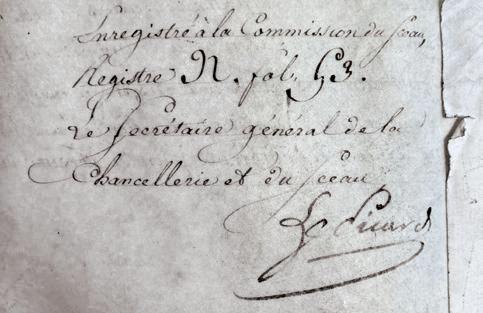 Enregistré à la Commission du Sceau,
Registre N. fol. 53.
Le Secrétaire général de la
Chancellerie et du Sceau
Le Picard